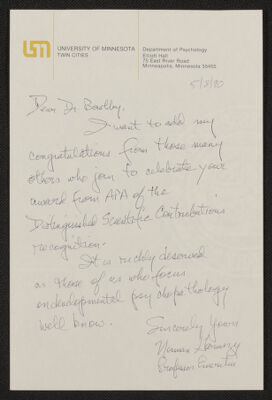 UNIVERSITY OF MINNESOTA
TWIN CITIES
Department of Psychology
Elliott Hall
75 East River Road
Minneapolis, Minnesota 55455
5/8/90
Dear Dr
I want to add my
congratulations from those many
others who join to celebrate your
award from APA of the
Distinguished Scientific Contributions
recognition.
It is richly deserved
as those of us who focus
on developmental psychopathology
well know.
Sincerely Yours
Norman Garmezy
Professor Emeritus